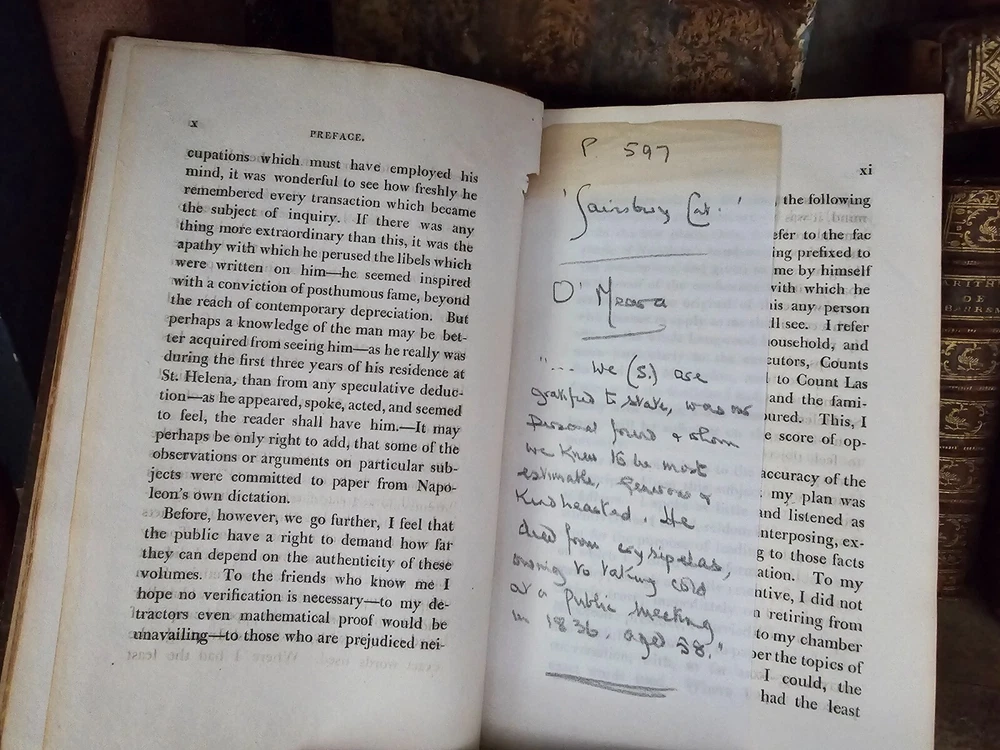 x
PREFACE.
cupations which must have employed his
mind, it was wonderful to see how freshly he
remembered every transaction which became
the subject of inquiry. If there was any
thing more extraordinary than this, it was the
apathy with which he perused the libels which
were written on him—he seemed inspired
with a conviction of posthumous fame, beyond
the reach of contemporary depreciation. But
perhaps a knowledge of the man may be bet-
ter acquired from seeing him—as he really was
during the first three years of his residence at
St. Helena, than from any speculative deduc-
tion—as he appeared, spoke, acted, and seemed
to feel, the reader shall have him.—It may
perhaps be only right to add, that some of the
observations or arguments on particular sub-
jects were committed to paper from Napo-
leon's own dictation.
Before, however, we go further, I feel that
the public have a right to demand how far
they can depend on the authenticity of these
volumes. To the friends who know me I
hope no verification is necessary—to my de-
tractors even mathematical proof would be
unavailing—to those who are prejudiced nei-
P. 597
'Sainsbury Cat.'
O'Meara
"... we (S.) are
gratified to state, was our
personal friend & whom
we knew to be most
estimable, generous &
kindhearted. He
died from erysipelas,
owing to taking cold
at a public meeting
in 1836. aged 58."
xi
the following
efer to the fac
ing prefixed to
me by himself
with which he
his any person
ll see. I refer
ousehold, and
cutors, Counts
to Count Las
and the fami-
oured. This, I
e score of op-
accuracy of the
my plan was
and listened as
nterposing, ex-
g to those facts
ation. To my
ntive, I did not
n retiring from
to my chamber
per the topics of
I could, the
had the least
ARITHM
DE